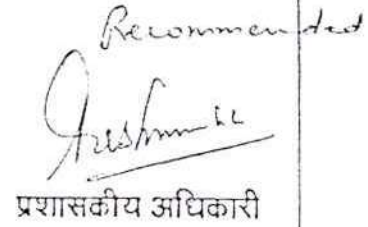 Recommended
प्रशासकीय अधिकारी